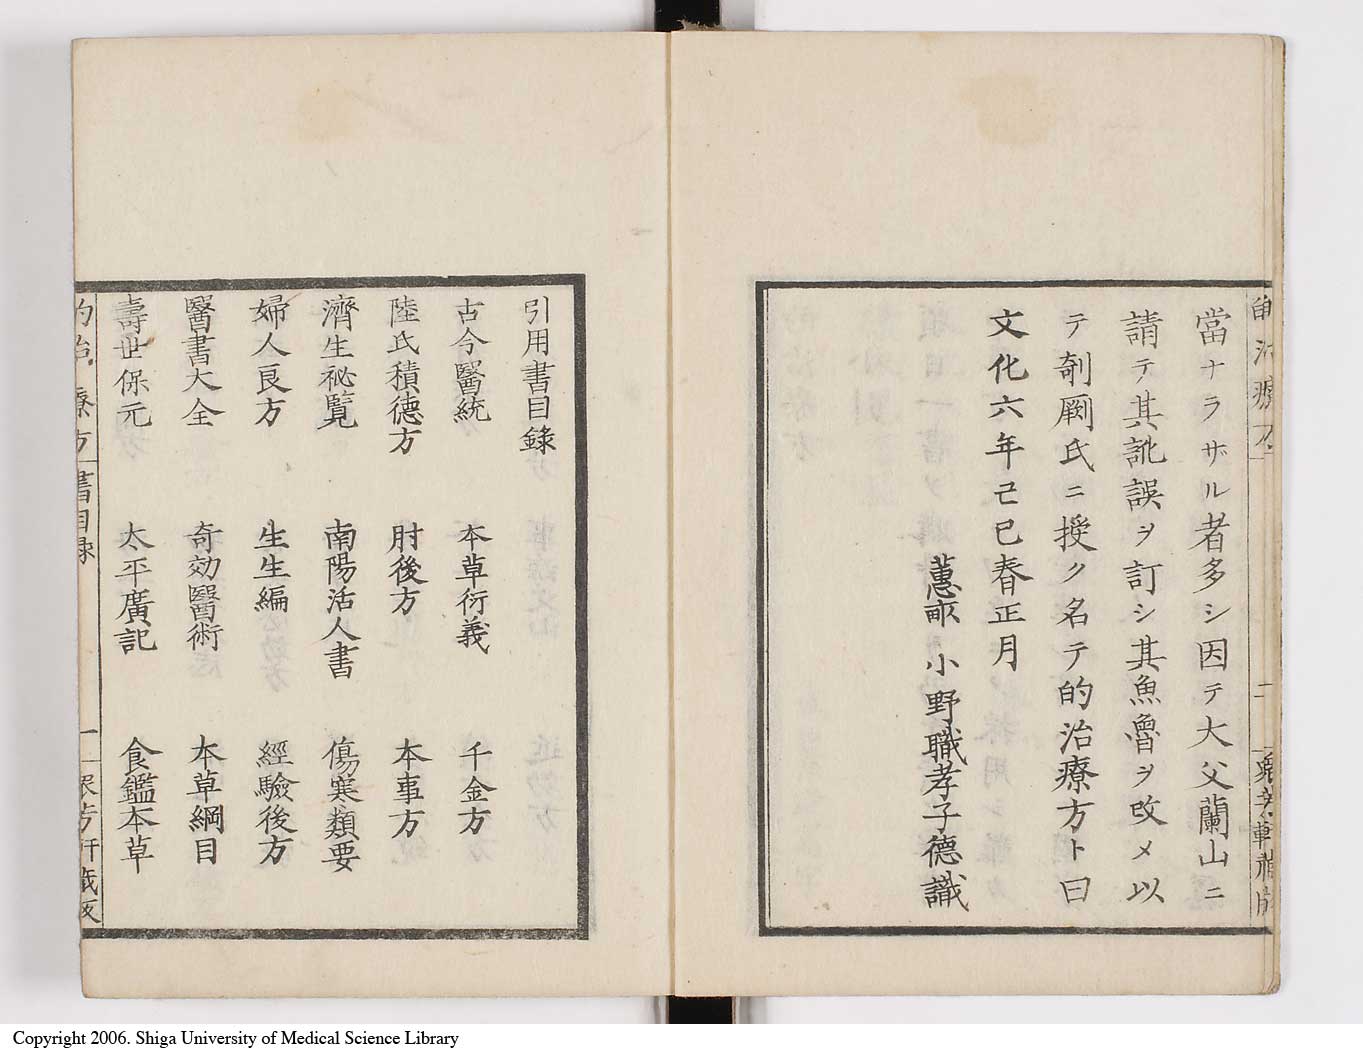 當ナラザル者多シ因テ大父蘭山ニ
請テ其訛誤ヲ訂シ其魚魯ヲ改メ以
テ剞劂氏ニ授ク名テ的治療方ト曰
文化六年己巳春正月
蕙畝 小野職孝子德識
引用書目錄
古今醫統 本草衍義 千金方
陸氏積德方 肘後方 本事方
濟生祕覽 南陽活人書 傷寒類要
婦人良方 生生編 經驗後方
醫書大全 奇効醫術 本草綱目
壽世保元 太平廣記 食鑑本草
的治療方 書目錄 一 衆芳軒藏版
Copyright 2006. Shiga University of Medical Science Library